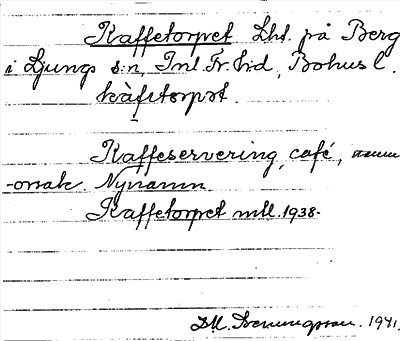 Kaffetorpet Lht. på Berg
i Ljungs s:n, Inl. Fr. h:d, Bohusl.
kàfetorpət.
Kaffeservering, café, namn
-orsak. Nynamn.
Kaffetorpet mtl. 1938.
1941.